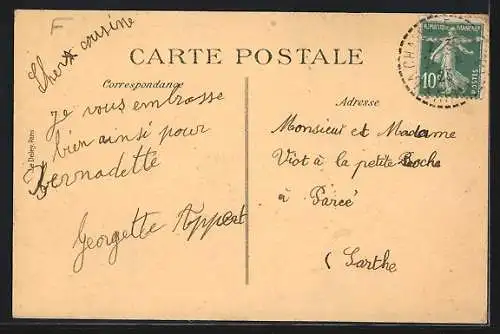 F
Cher cousine
CARTE POSTALE
Correspondance
Adresse
Je vous embrasse
bien ainsi pour
Bernadette
Georgette Appert
Monsieur et Madame
Viot à la petite Roche
à Parcé
(Sarthe
REPUBLIQUE FRANCAISE
10c
POSTES